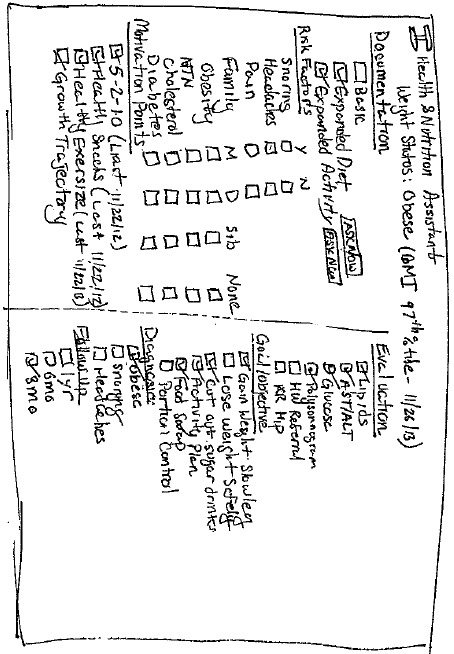 Health & Nutrition Assistant
Weight Status: Obese (BMI 97th %tile - 11/26/13)
Documentation
Basic
Expanded Diet Ask Now
Expanded Activity Ask Now
Risk Factors
Y N
Snoring
Headaches
Pain
Family M D Sib None
Obesity
HTN
Cholesterol
Diabetes
Motivation Points
5-2-10 (Last 11/22/12)
Healthy Snacks (Last 11/22/12)
Healthy Exersize (Last 11/22/12)
Growth Trajectory
Evaluation
Lipids
AST/ALT
Glucose
Polysomnogram
HW Referral
Goal/Objective
Gain Weight Slowley
Lose Weight Safely
Cut out sugar drinks
Activity Plan
Food Swap
Portion Control
Diagnosis:
Obese
Snoring
Headaches
Follow Up
1yr
6mo
3mo